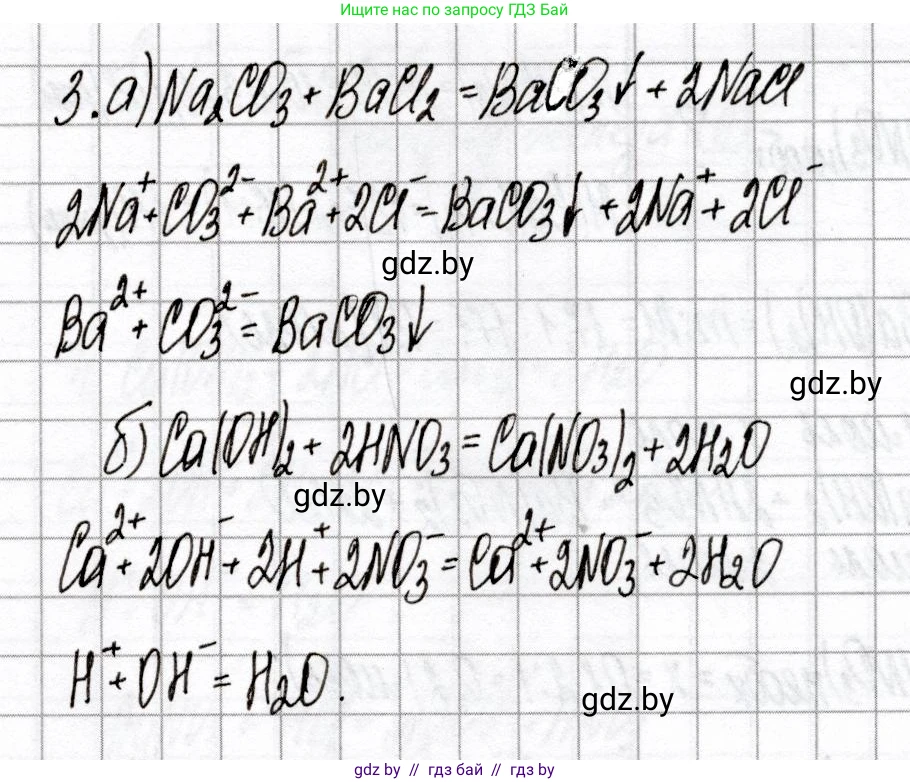 Ищите нас по запросу ГДЗ Бай
3. а) Na₂CO₃ + BaCl₂ = BaCO₃↓ + 2NaCl
2Na⁺ + CO₃²⁻ + Ba²⁺ + 2Cl⁻ = BaCO₃↓ + 2Na⁺ + 2Cl⁻
gdz.by
Ba²⁺ + CO₃²⁻ = BaCO₃↓
gdz.by
б) Ca(OH)₂ + 2HNO₃ = Ca(NO₃)₂ + 2H₂O
gdz.by
Ca²⁺ + 2OH⁻ + 2H⁺ + 2NO₃⁻ = Ca²⁺ + 2NO₃⁻ + 2H₂O
H⁺ + OH⁻ = H₂O.
gdz.by
gdz.by // гдз бай // гдз by